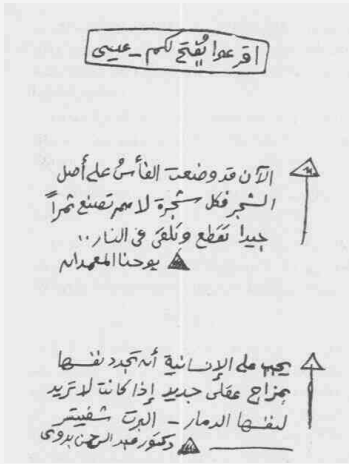 اقرعوا يُفتح لكم - عيسى
الآن قد وضعت الفأسُ على أصل
الشجر فكل شجرة لا تصنع ثمراً
جيدا تقطع وتلقى في النار..
يوحنا المعمدان
يجب على الإنسانية أن تجدد نفسها
بمزاج عقلى جديد إذا كانت لا تريد
لنفسها الدمار - البرت شفيتسر
دكتور عبد الرحمن بدوى